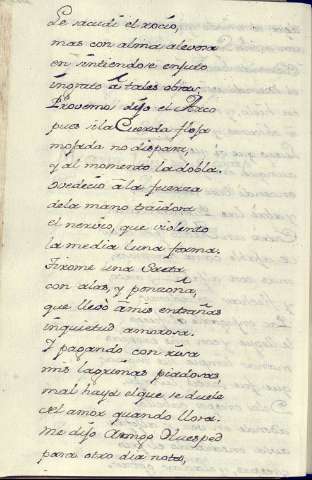 Le sacudi el rocio,
mas con alma alevosa
en sintiendose enjuto
ingrato â tales obras,
Provemos dijo el Arco
pues si la Cuerda floja
mojada no dispara,
y al momento la dobla.
ovedeciò â la fuerza
de la mano traidora
el nervio, que violento
la media luna forma.
Tirome una Saeta
con alas, y ponzoña,
que llevò â mis entrañas
inquietud amorosa.
Y pagando con risa
mis lagrimas piadosas,
mal haya el que se duele
del amor quando llora.
me dijo Amigo Huesped
para otro dia nota,